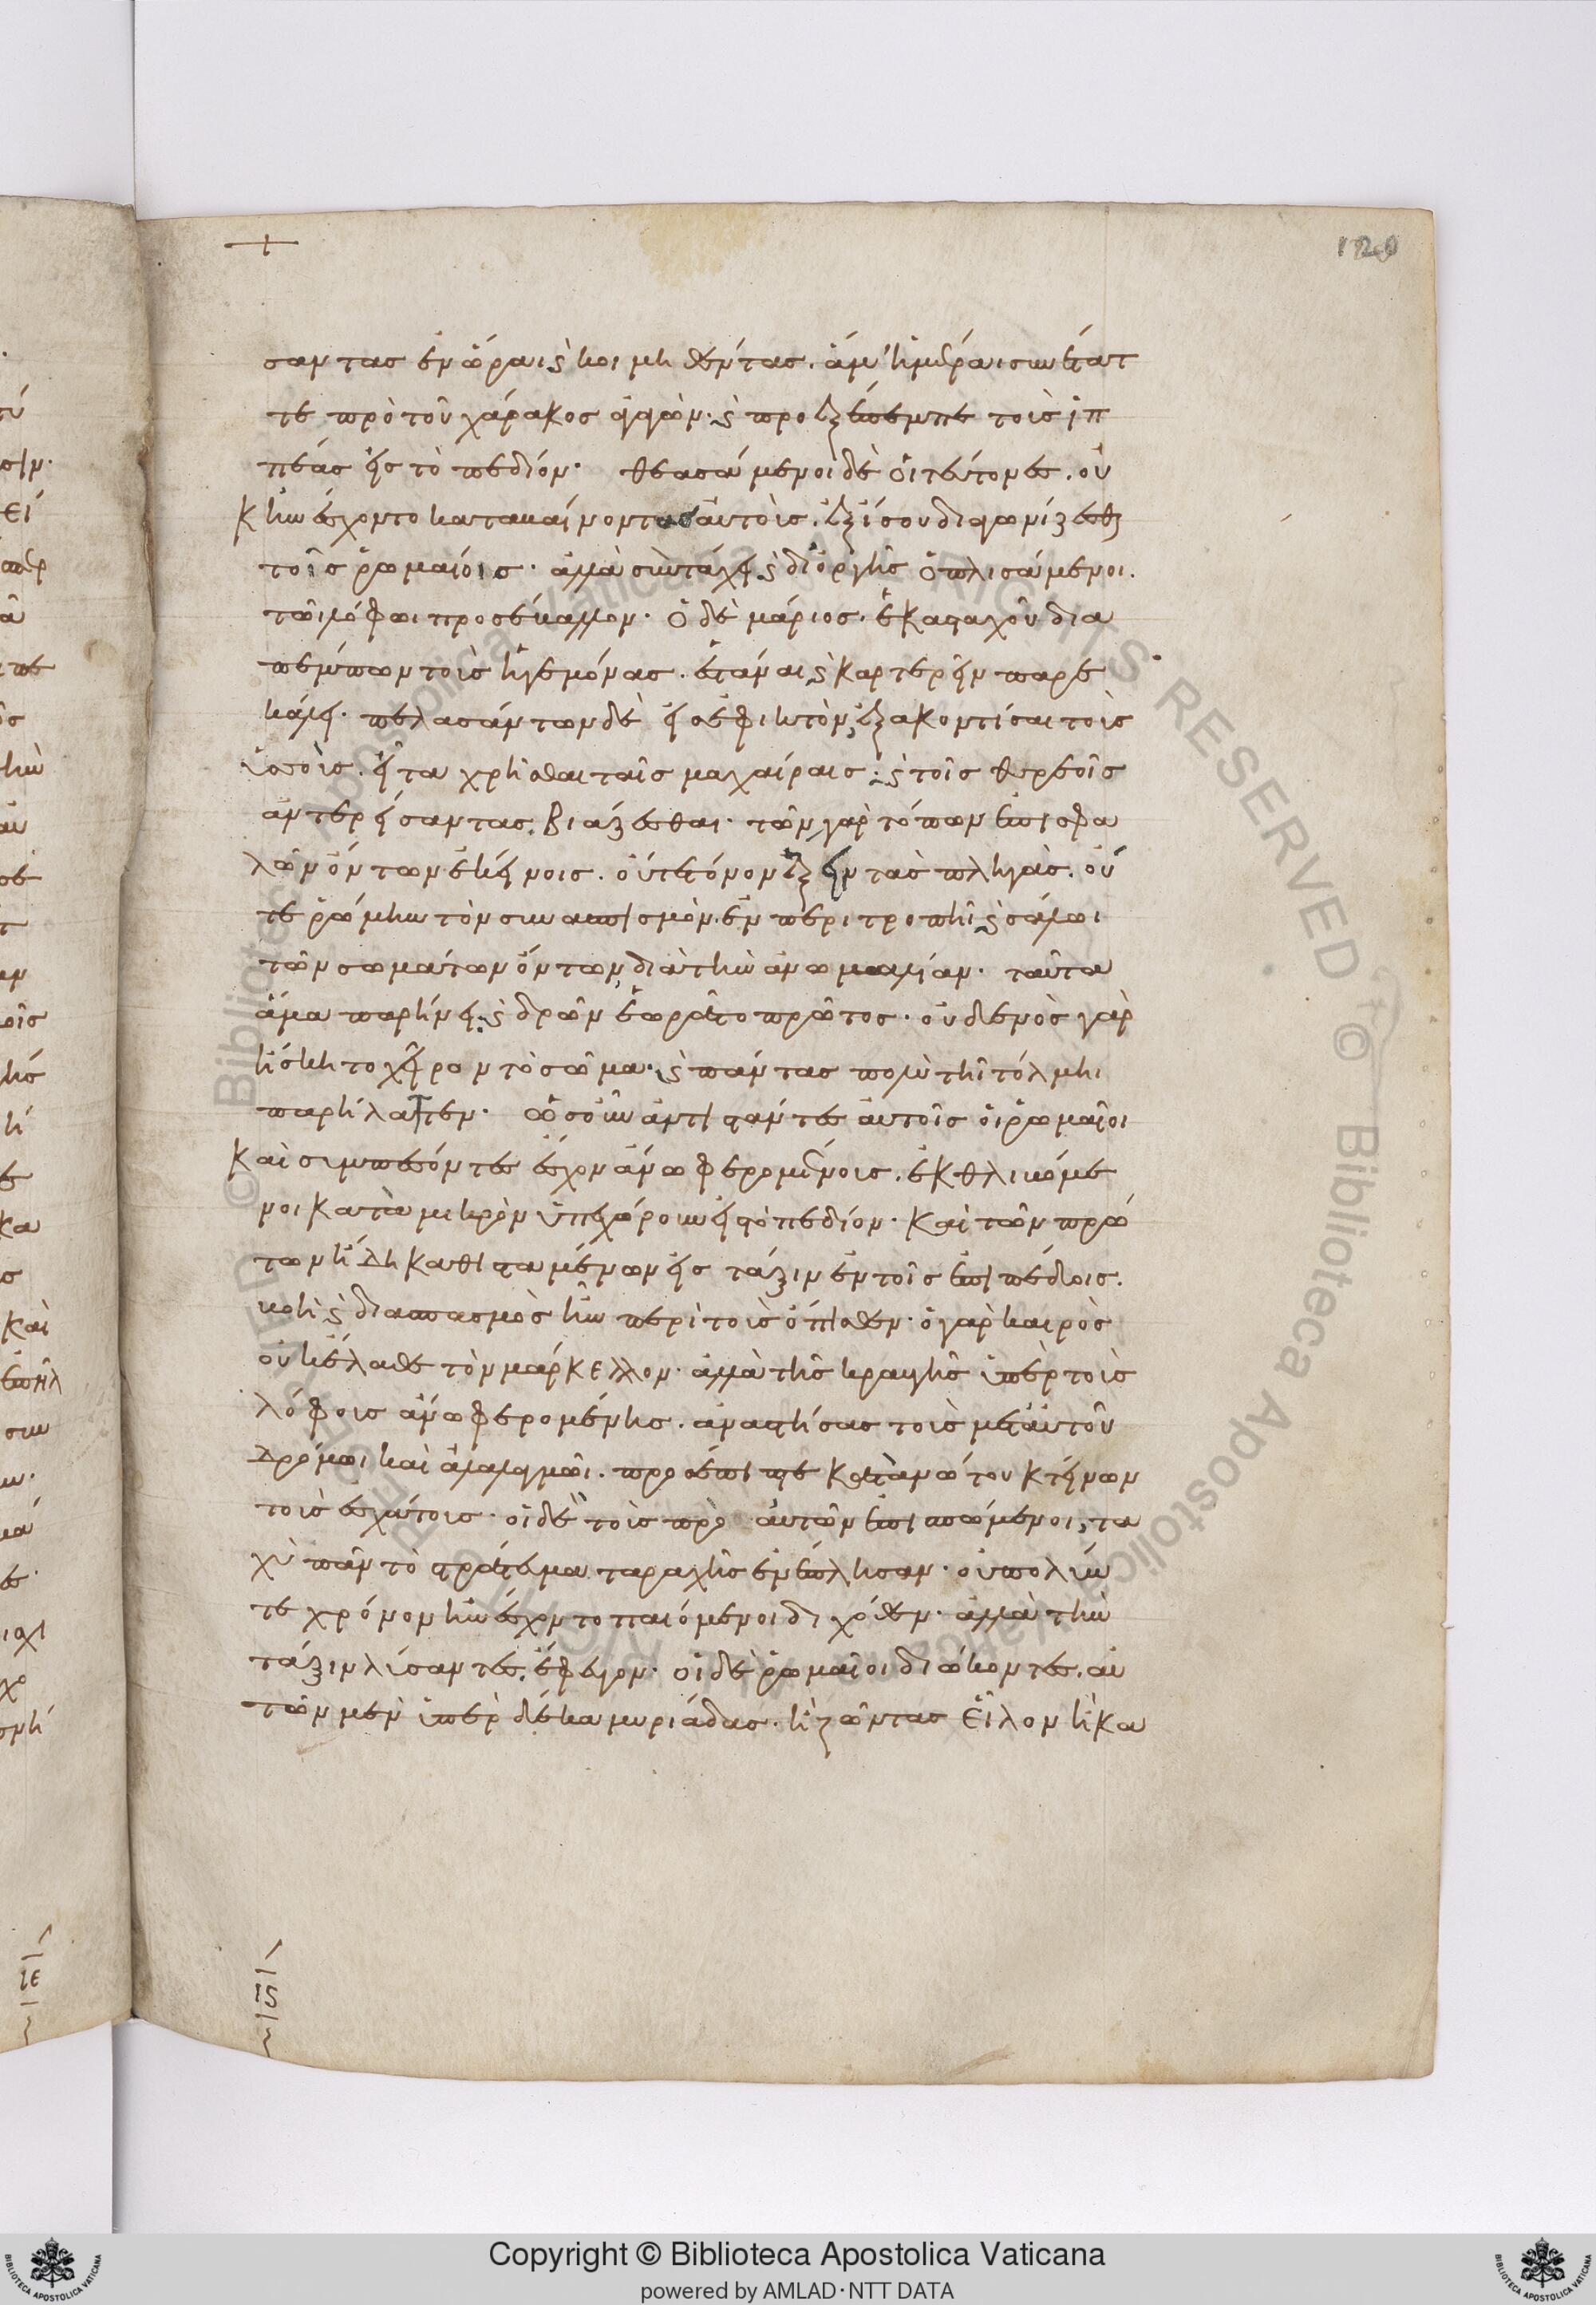 σαντας ἐν ὥραι ϛ κοιμηθέντας. ἅμ' ἡμέραι συνέτατ
τε πρὸ τοῦ χάρακος ἀγαγών· ϛ προεξέπεμπε τοὺς ἱπ
πέας εἰς τὸ πεδίον· θεασάμενοι δὲ οἱ τεύτονες. οὐ
κ ἠνέσχοντο καταβαίνοντας αὐτοῖς. ἐξίσου διαγωνίζεσθαι
τοῖς ῥωμαίοις· ἀλλὰ σὺν τάχει ϛ δι' ὀργῆς ὁπλισάμενοι.
τῶι λόφωι προσέβαλλον· ὁ δὲ μάριος. ἑκασταχοῦ δια
πέμπων τοὺς ἡγεμόνας. ἑστάναι ϛ καρτερεῖν παρε
κάλει· πελασάντων δὲ εἰς ἐφικτὸν, ἐξακοντίσαι τοὺς
ὑσσούς. εἶτα χρῆσθαι ταῖς μαχαίραις· ϛ τοῖς θυρεοῖς
ἀντερείσαντας. βιάζεσθαι· τῶν γὰρ τόπων ἐπισφα
λῶν ὄντων ἐκείνοις. οὔτε τόνον ἕξειν τὰς πληγάς. οὔ
τε ῥώμην τὸν συνασπισμόν. ἐν περιτροπῆι ϛ σάλωι
τῶν σωμάτων ὄντων διὰ τὴν ἀνωμαλίαν· ταῦτα
ἅμα παρήνει· ϛ δρῶν, ἑωρᾶτο πρῶτος· οὐδενὸς γὰρ
ἤσκητο χεῖρον τὸ σῶμα· ϛ πάντας πολὺ τῆι τόλμηι
παρήλαττεν· ὡς οὖν ἀντιστάντες αὐτοῖς οἱ ῥωμαῖοι
καὶ συμπεσόντες ἔσχον ἄνω φερομένοις. ἐκθλιβόμε
νοι κατὰ μικρὸν ὑπεχώρουν εἰς τὸ πεδίον· καὶ τῶν πρώ
των ἤδη καθισταμένων εἰς τάξιν ἐν τοῖς ἐπιπέδοις.
βοὴ ϛ διασπασμὸς ἦν περὶ τοὺς ὄπισθεν· ὁ γὰρ καιρὸς
οὐκ ἔλαθε τὸν μάρκελλον· ἀλλὰ τῆς κραυγῆς ὑπὲρ τοὺς
λόφους ἄνω φερομένης. ἀναστήσας τοὺς μετ' αὐτοῦ
δρόμωι καὶ ἀλαλαγμῶι. προσέπιπτε κατὰ νώτου κτείνων
τοὺς ἐσχάτους· οἱ δὲ τοὺς πρὸ αὐτῶν ἐπισπώμενοι, τα
χὺ πᾶν τὸ στράτευμα ταραχῆς ἐνέπλησαν· οὐ πολύν
τε χρόνον ἠνέσχοντο παιόμενοι διχόθεν· ἀλλὰ τὴν
τάξιν λύσαντες. ἔφευγον· οἱ δὲ ῥωμαῖοι διώκοντες. αὐ
τῶν μὲν ὑπὲρ δέκα μυριάδας. ἢ ζῶντας εἷλον ἢ κα